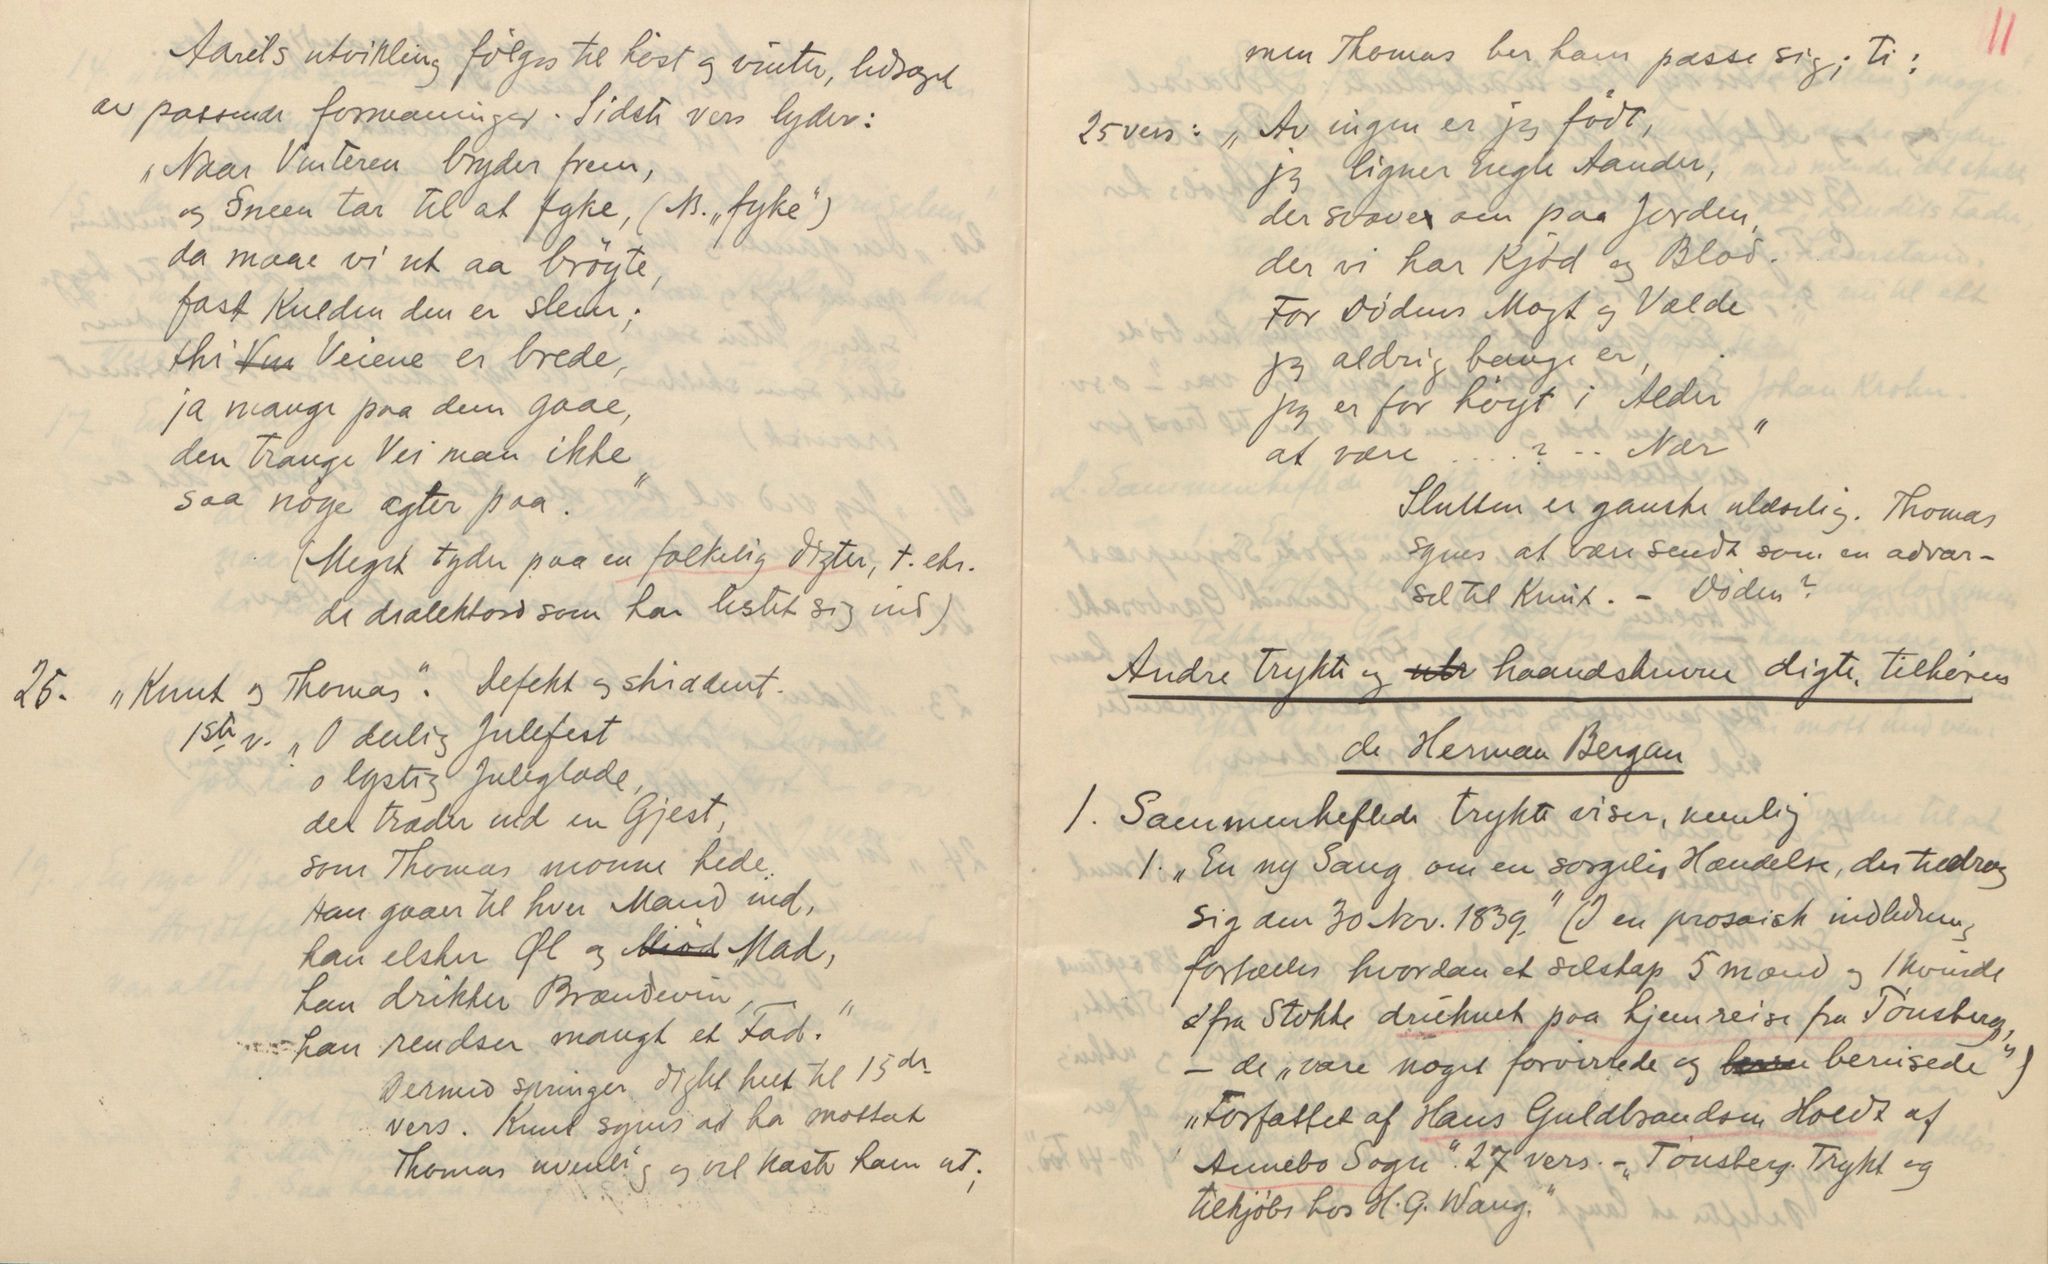 Aarets utvikling følges til høst og vinter, ledsaget
av passende formaninger. Sidste vers lyder:
„Naar Vinteren bryder frem,
og Sneen tar til at fyke, (N.B. „fyke")
da maae vi ut aa brøyte,
fast Kulden den er slem;
thi Veiene er brede,
ja mange paa dem gaae,
den trange Vei man ikke
saa nøye agter paa."
(Meget tyder paa en folkelig digter, t. eks.
de dialektord som har listet sig ind)
25. „Knut og Thomas". Defekt og skiddent.
1ste v. „O deilig Julefest
o lystig Juleglæde,
der træder ind en Gjest,
som Thomas monne hede.
Han gaaer til hver Mand ind,
han elsker Øl og Mad,
han drikker Brændevin, —
han rendser mangt et Fad."
Dermed springer digtet helt til 15de
vers. Knut synes at ha mottat
Thomas uvenlig og vil kaste ham ut;
11
men Thomas ber ham passe sig; ti:
25 vers: „Av ingen er jeg født,
jeg ligner nogle Aander,
der svæver om paa Jorden,
der vi har Kjød og Blod.
For Dødens Magt og Vælde
jeg aldrig bange er,
jeg er for høyt i Alder
at være ....?... Nær"
Slutten er ganske ulæselig. Thomas
synes at være sendt som en advar-
sel til Knut. — Døden?
Andre trykte og haandskrevne digte, tilhørende
Herman Bergan
1. Sammenheftede trykte viser, nemlig
1. „En ny Sang om en sorgelig Hændelse, der tildrog
sig den 30 Nov. 1839." (I en prosaisk indledning
fortælles hvordan et selskap 5 mænd og 1 kvinde
fra Stokke druknet paa hjemreise fra Tönsberg,
— de „vare noget forvirrede og berusede")
„Forfattet af Hans Guldbrandsen Holdt af
Annebo Sogn". 27 vers. — „Tönsberg. Trykt og
tilkjøbs hos H. G. Wang."